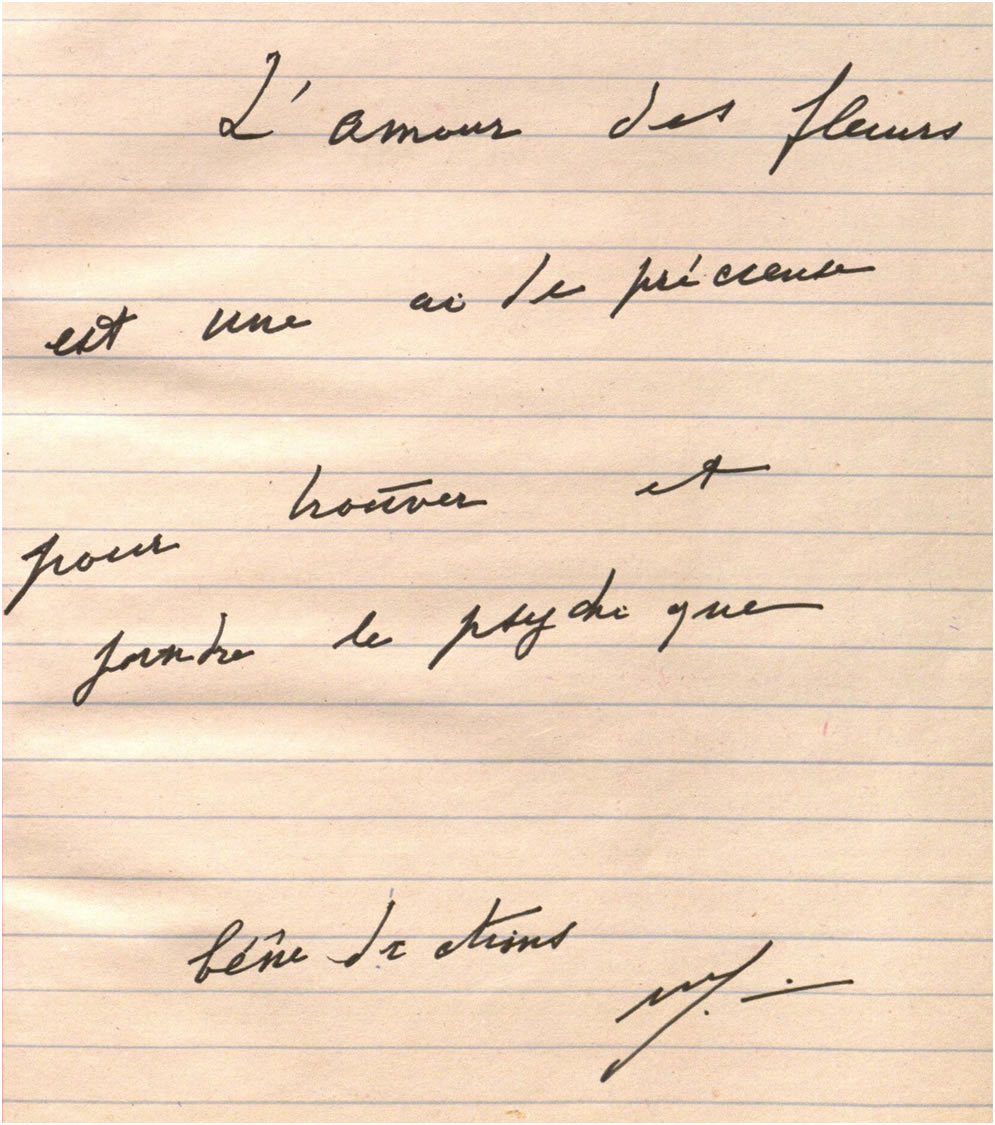 L'amour des fleurs
est une aide précieuse
pour trouver et
joindre le psychique
bénédictions